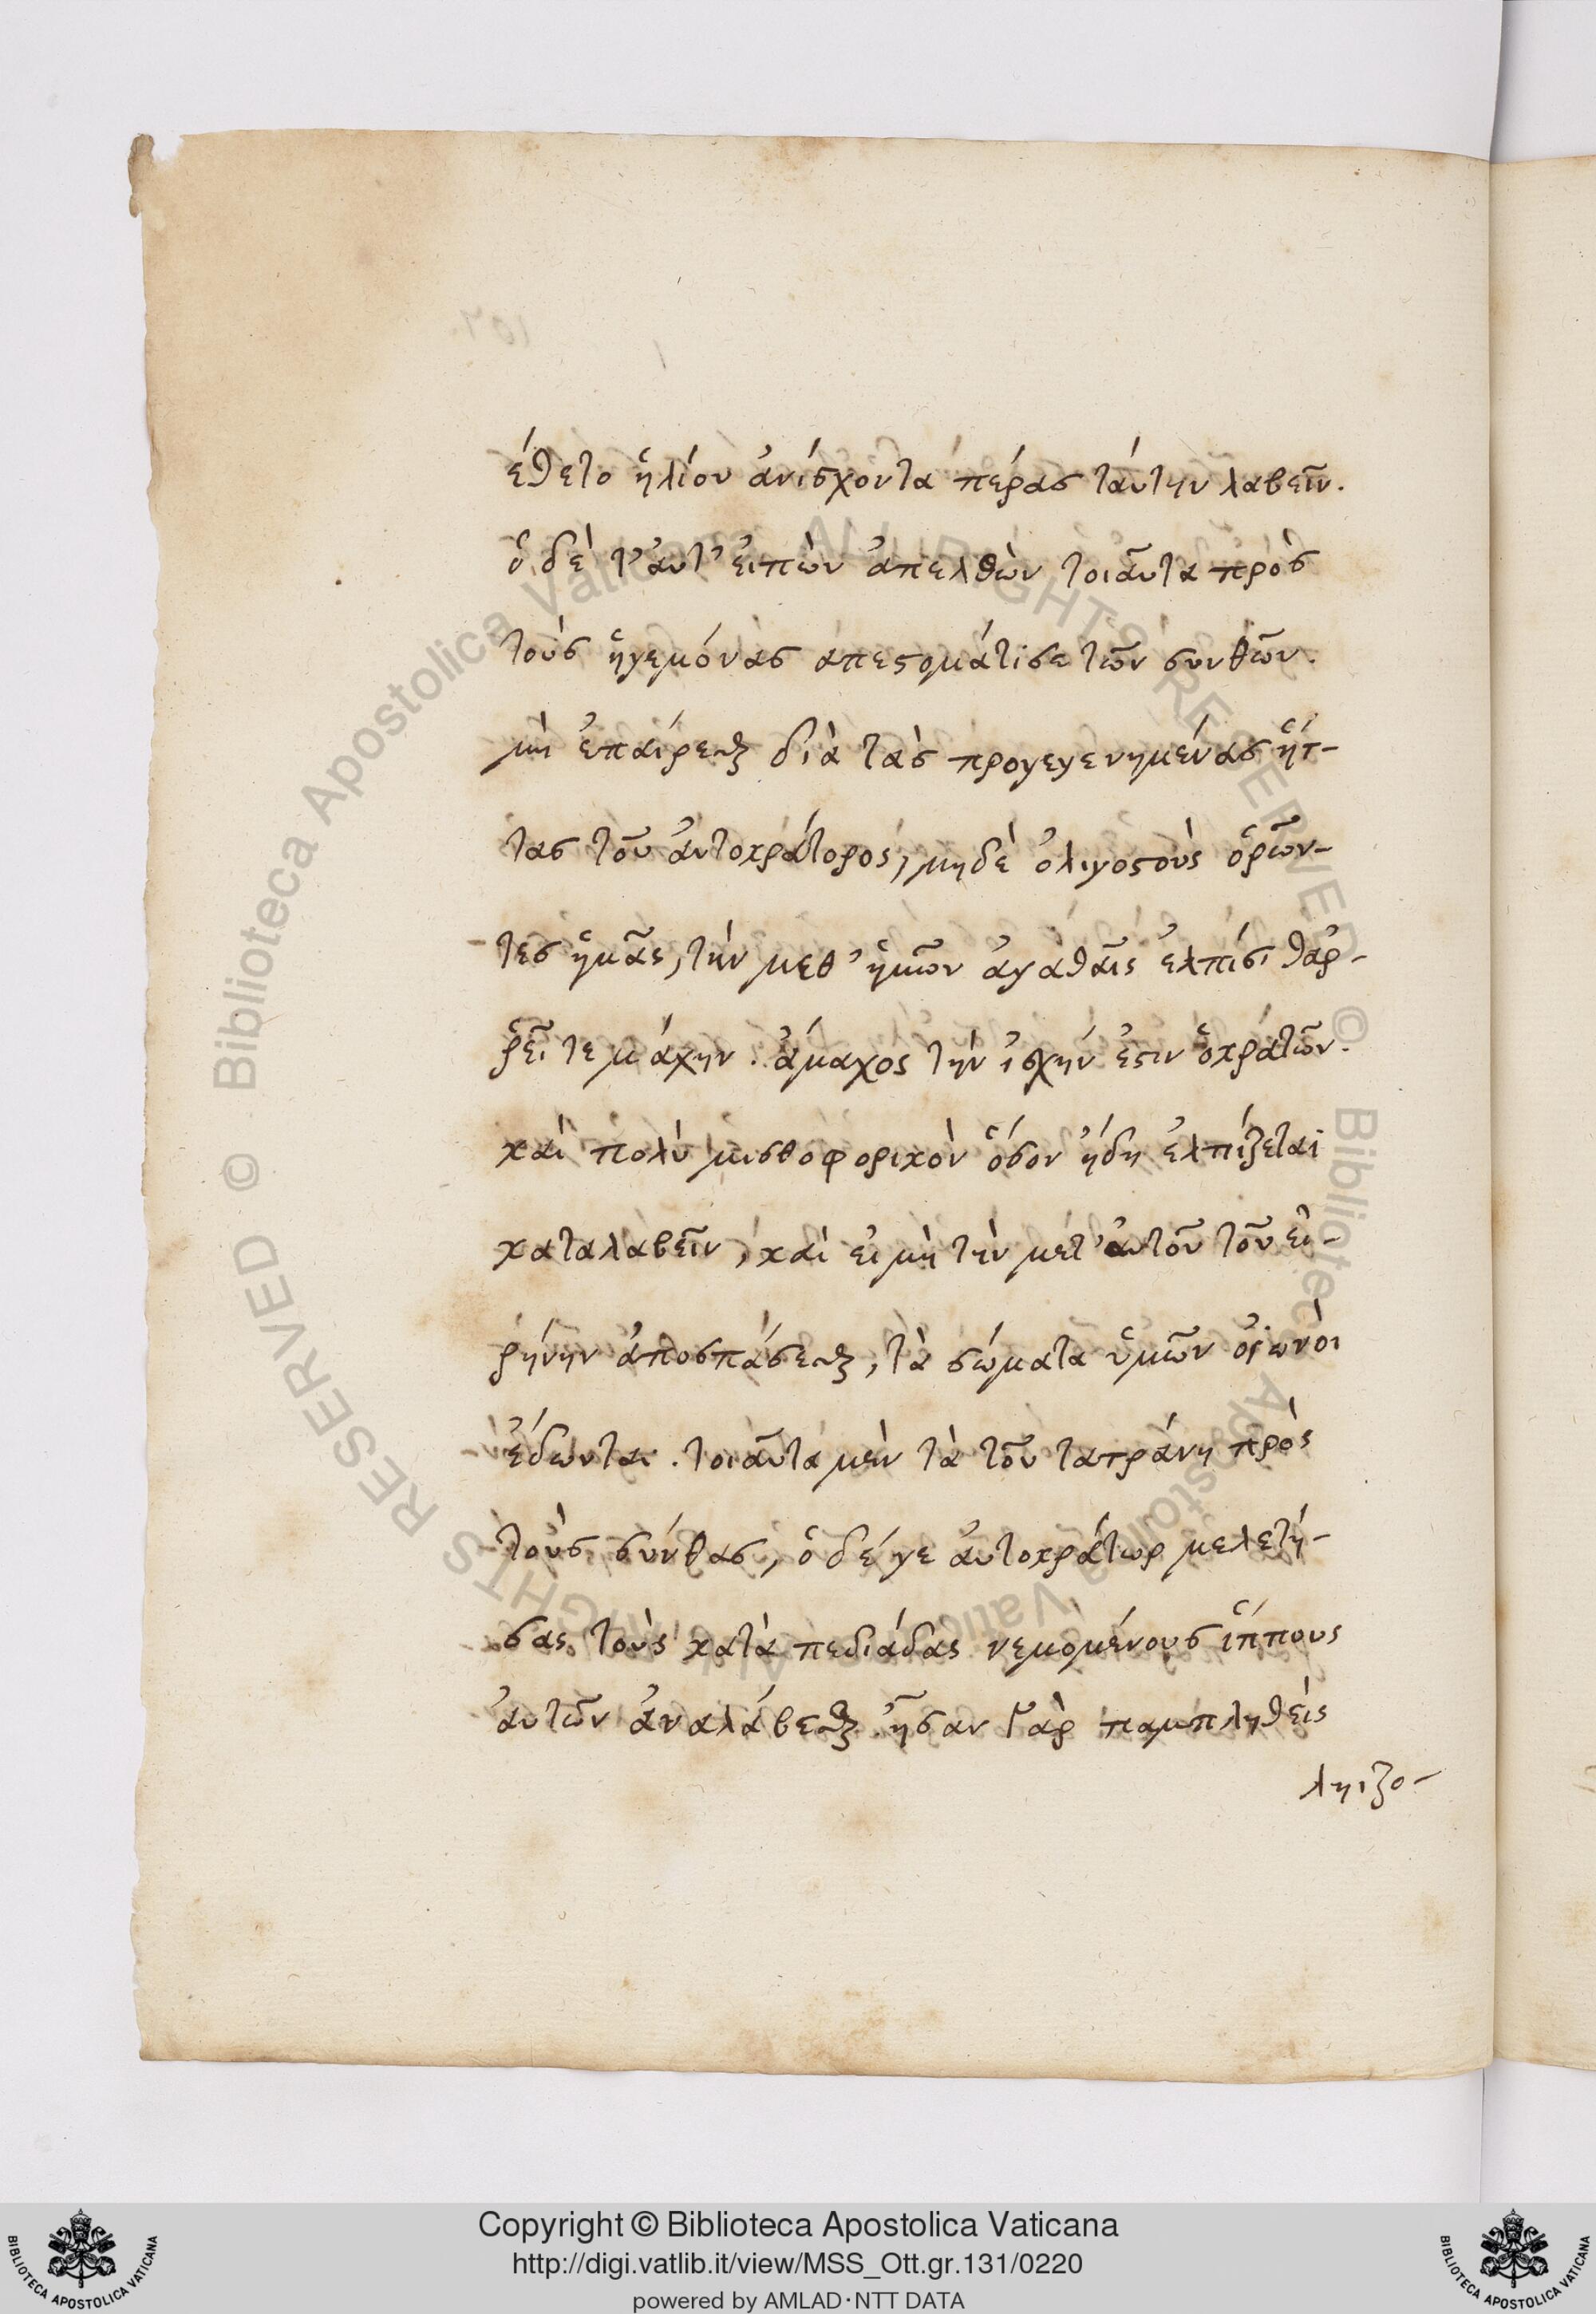 έθετο ἡλίου ἀνίσχοντα πέρας ταύτην λαβεῖν.
ὁ δὲ τ' αὐτ' εἰπὼν ἀπελθὼν τοιαῦτα πρὸς
τοὺς ἡγεμόνας ἀπεστομάτισε τῶν σκυθῶν.
μὴ ἐπαίρεσθε διὰ τὰς προγεγενημένας ἥτ-
τας τοῦ αὐτοκράτορος, μηδὲ ὀλιγοστοὺς ὁρῶν-
τες ἡμᾶς, τὴν μεθ' ἡμῶν ἀγαθαῖς ἐλπίσι θαῤ-
ῥεῖτε μάχην. ἄμαχος τὴν ἰσχήν ἐστιν ὁ κρατῶν.
καὶ πολὺ μισθοφορικὸν ὅσον ἤδη ἐλπίζεται
καταλαβεῖν, καὶ εἰ μὴ τὴν μετ' αὐτοῦ τοῦ εἰ-
ρήνην ἀποσπάσεσθε, τὰ σώματα ὑμῶν οἰωνοὶ
ἔδωνται. τοιαῦτα μὲν τὰ τοῦ τατράνη πρὸς
τοὺς σκύθας, ὁ δέ γε αὐτοκράτωρ μελετή-
σας τοὺς κατὰ πεδιάδας νεμομένους ἵππους
αὐτῶν ἀναλάβεσθε ἦσαν γὰρ παμπληθεὶς
ληιζο-
Copyright © Biblioteca Apostolica Vaticana
http://digi.vatlib.it/view/MSS_Ott.gr.131/0220
powered by AMLAD·NTT DATA